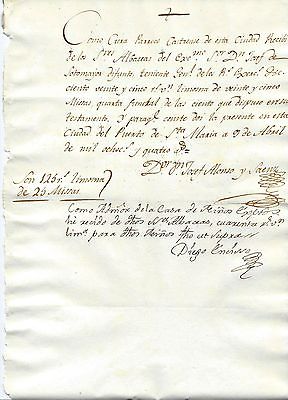 Como Cura Parroco Castrense de esta Ciudad Recibi
de los Sres Albaceas del Exmo Sr Dn Josef de
Sotomayor difunto, teniente Genl de la Rl
ciento veinte y cinco rs vn limosna de veinte y cinco
Misas, quarta funeral de las ciento que dispuso en su
testamento. Y para qe conste doi la presente en esta
Ciudad del Puerto de Sta Maria a 9 de Abril
de mil ochocs y quatro
Josef Alonso y Saenz
Son 125 rs limosna
de 25 Misas
Como Admor de la Casa de Niños Expósitos
he recido de dhos Sres Albaceas, cuarenta rs vn
limna para dhos Niños fho ut supra
Diego